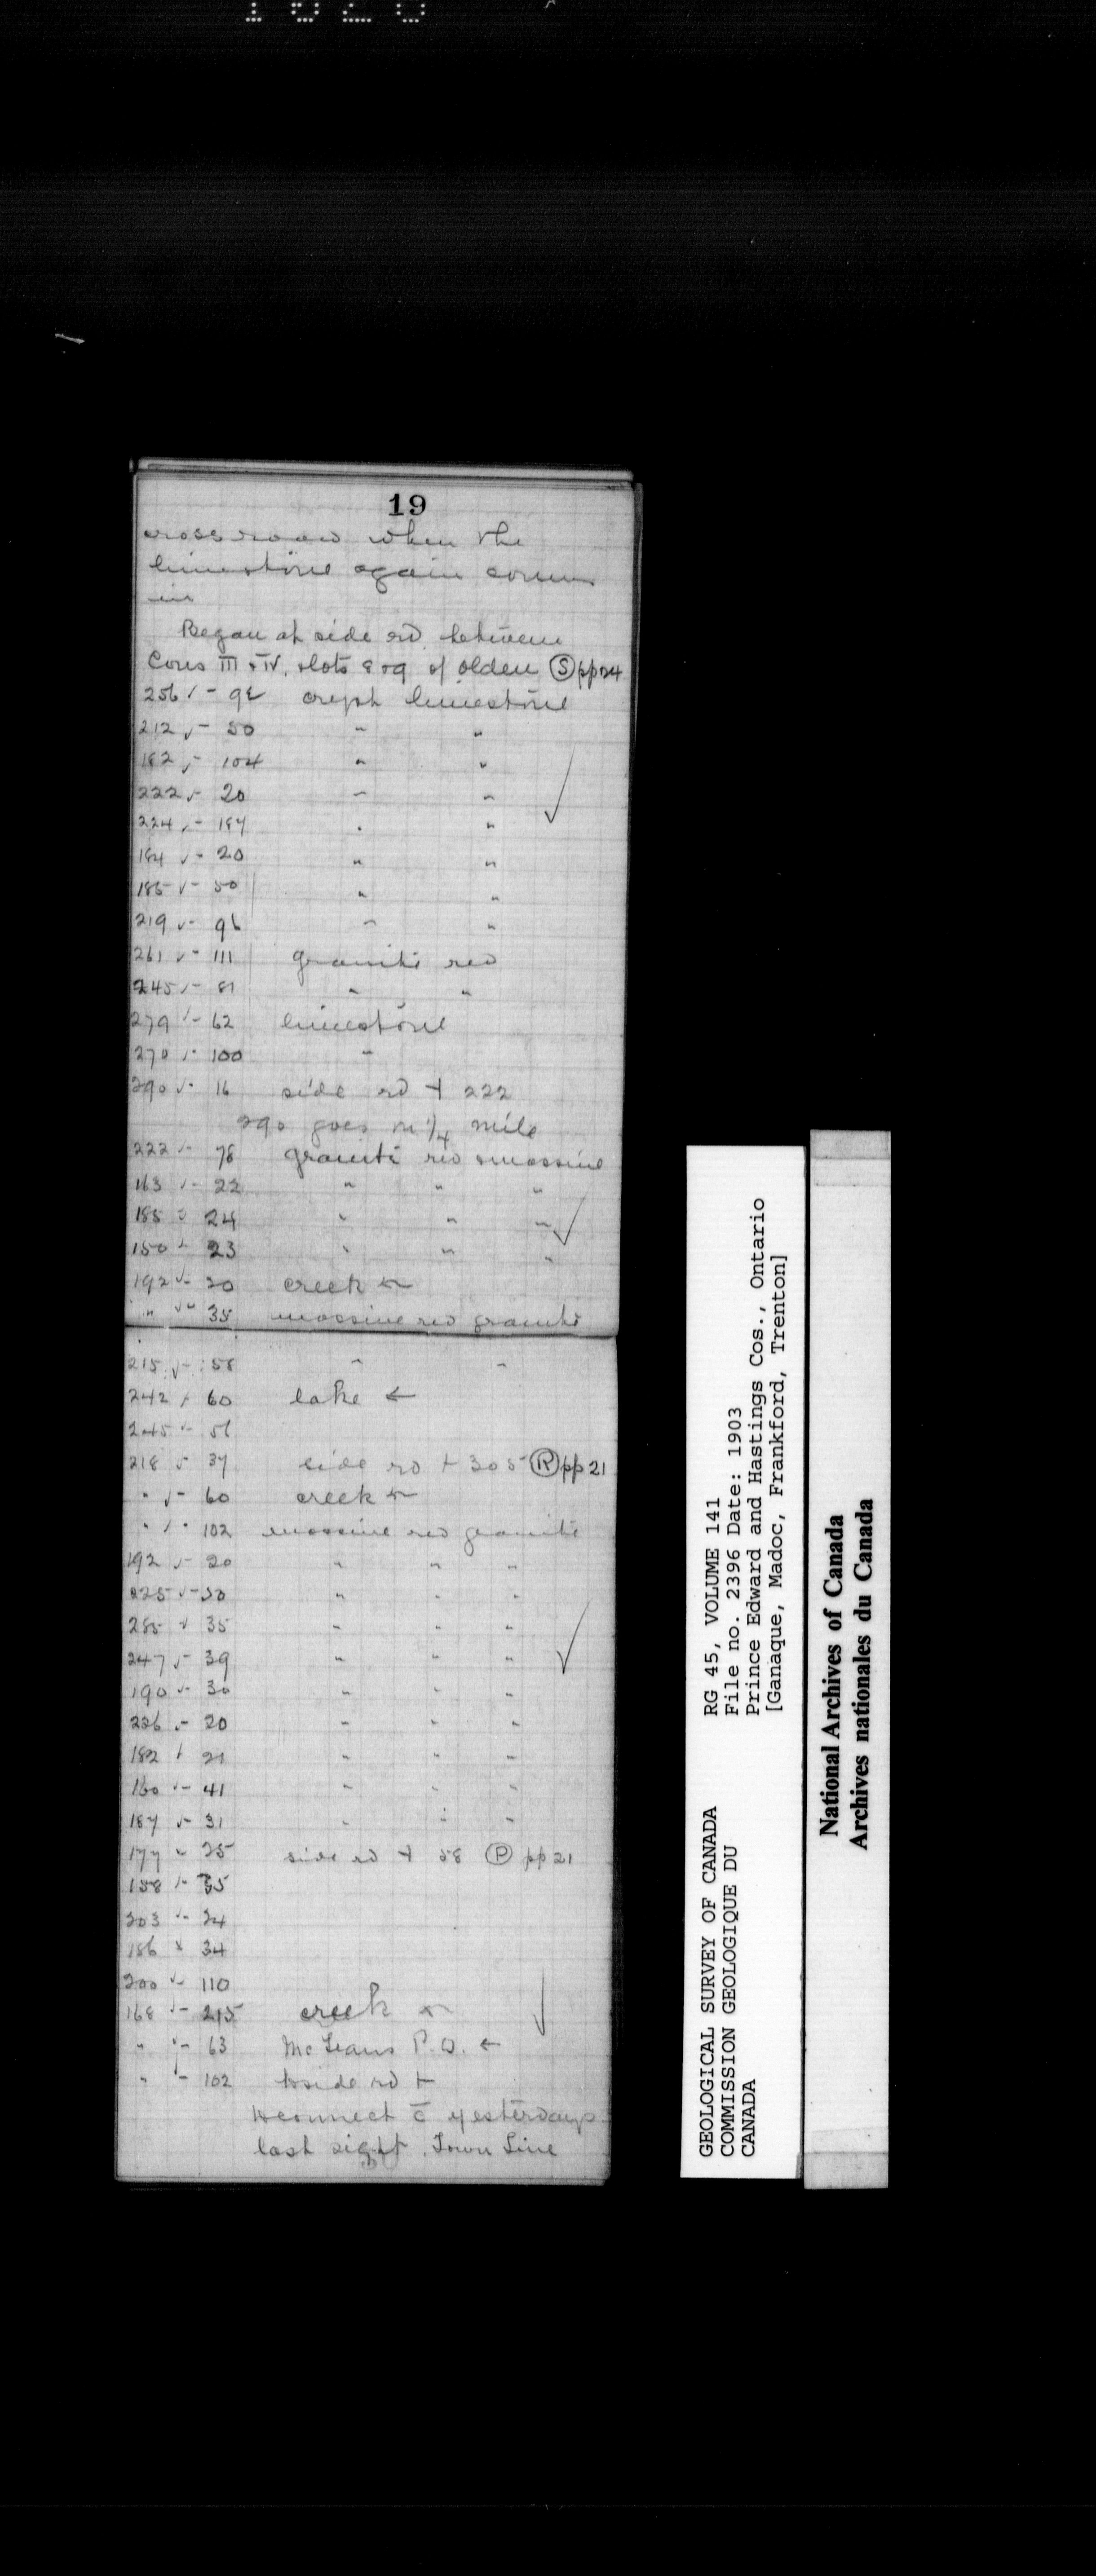 19
cross road when the
limestone again comes
in
Began at side rd. between
Cons III & IV. lots 8 & 9 of Olden Ⓢ pp 24
256 √ - 92 cryst limestone
212 √ - 50 " "
182 √ - 104 " "
222 √ - 20 " "
224 √ - 187 " "
184 √ - 20 " "
185 √ - 50 " "
219 √ - 96 " "
261 √ - 111 granite red
245 √ - 81 " "
279 √ - 62 limestone
270 √ - 100 "
290 √ - 16 side rd + 222
290 goes in 1/4 mile
222 √ - 78 granite red & massive
163 √ - 22 " " "
185 √ 24 " " "
150 √ 23 " " "
192 √ - 20 creek ←
" √ - 35 massive red granite
215 √ - 58 " "
242 √ 60 lake ←
245 √ - 56
218 √ 37 side rd + 305 Ⓡ pp 21
" √ - 60 creek ←
" √ - 102 massive red granite
192 √ - 20 " " "
225 √ - 50 " " "
285 √ 35 " " "
247 √ - 39 " " "
190 √ - 30 " " "
226 √ - 20 " " "
182 √ 21 " " "
160 √ - 41 " " "
187 √ - 31 " " "
177 √ 25 side rd + 58 Ⓟ pp 21
158 √ - 35
203 √ - 24
186 √ 34
200 √ - 110
168 √ - 215 creek ←
" √ - 63 McLeans P.O. ←
" √ - 102 to side rd +
to connect c̄ yesterdays
last sight. Town Line
GEOLOGICAL SURVEY OF CANADA
COMMISSION GEOLOGIQUE DU
CANADA
RG 45, VOLUME 141
File no. 2396 Date: 1903
Prince Edward and Hastings Cos., Ontario
[Ganaque, Madoc, Frankford, Trenton]
National Archives of Canada
Archives nationales du Canada